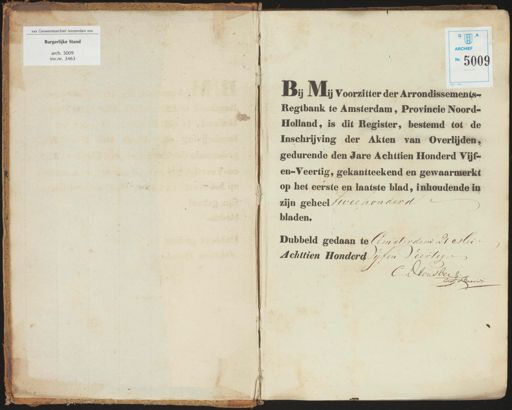 van Gemeentearchief Amsterdam
Burgerlijke Stand
arch. 5009
inv.nr. 3463
G. A.
ARCHIEF
No. 5009
Bij Mij Voorzitter der Arrondissements-
Regtbank te Amsterdam, Provincie Noord-
Holland, is dit Register, bestemd tot de
Inschrijving der Akten van Overlijden,
gedurende den Jare Achttien Honderd Vijf-
en-Veertig, gekantteekend en gewaarmerkt
op het eerste en laatste blad, inhoudende in
zijn geheel tweehonderd
bladen.
Dubbeld gedaan te Amsterdam
Achttien Honderd Vijfen Veertig